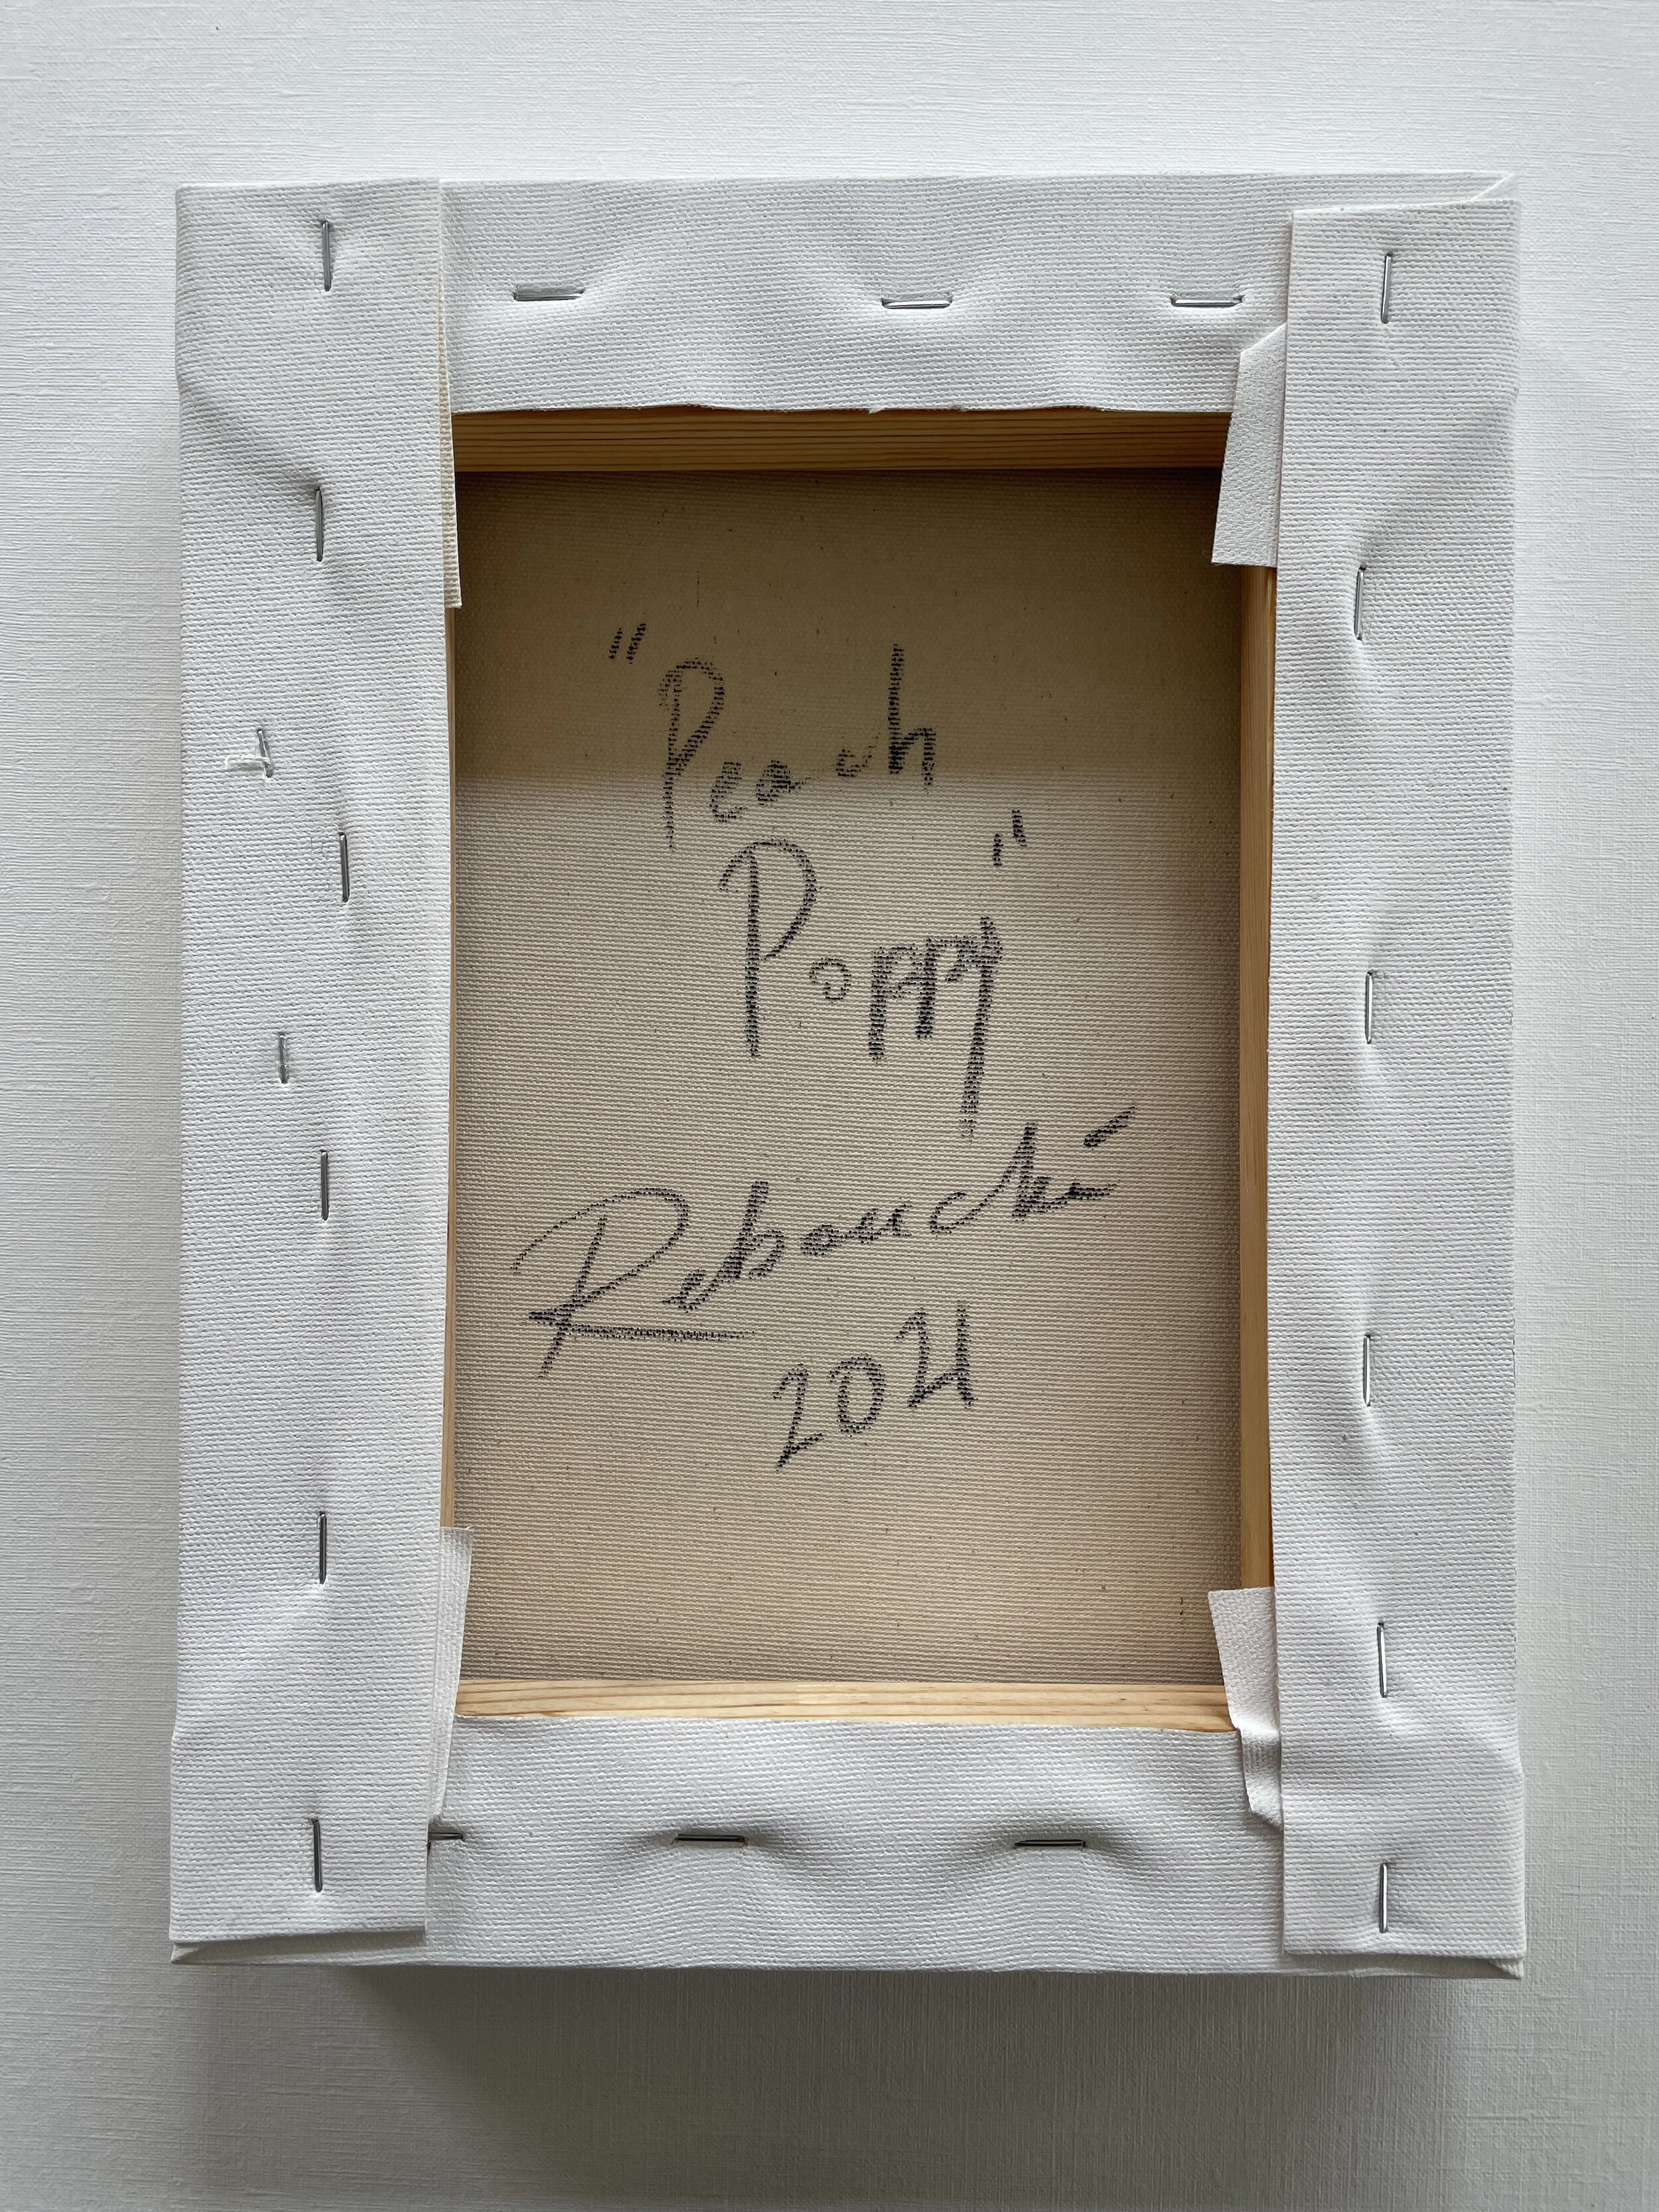 "Peach
Poppy"
Rebouché
2021